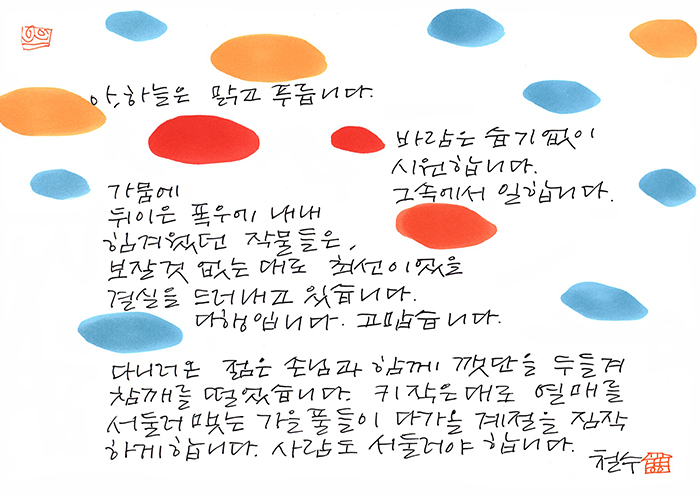 아, 하늘은 맑고 푸릅니다.
바람은 습기없이
시원합니다.
그속에서 일합니다.
가뭄에
뒤이은 폭우에 내내
힘겨웠던 작물들은,
보잘것 없는대로 최선이었을
결실을 드러내고 있습니다.
다행입니다. 고맙습니다.
다니러온 젊은 손님과 함께 깻단을 두들겨
참깨를 떨었습니다. 키작은대로 열매를
서둘러 맺는 가을풀들이 다가올 계절을 짐작
하게합니다. 사람도 서둘러야 합니다.
철수